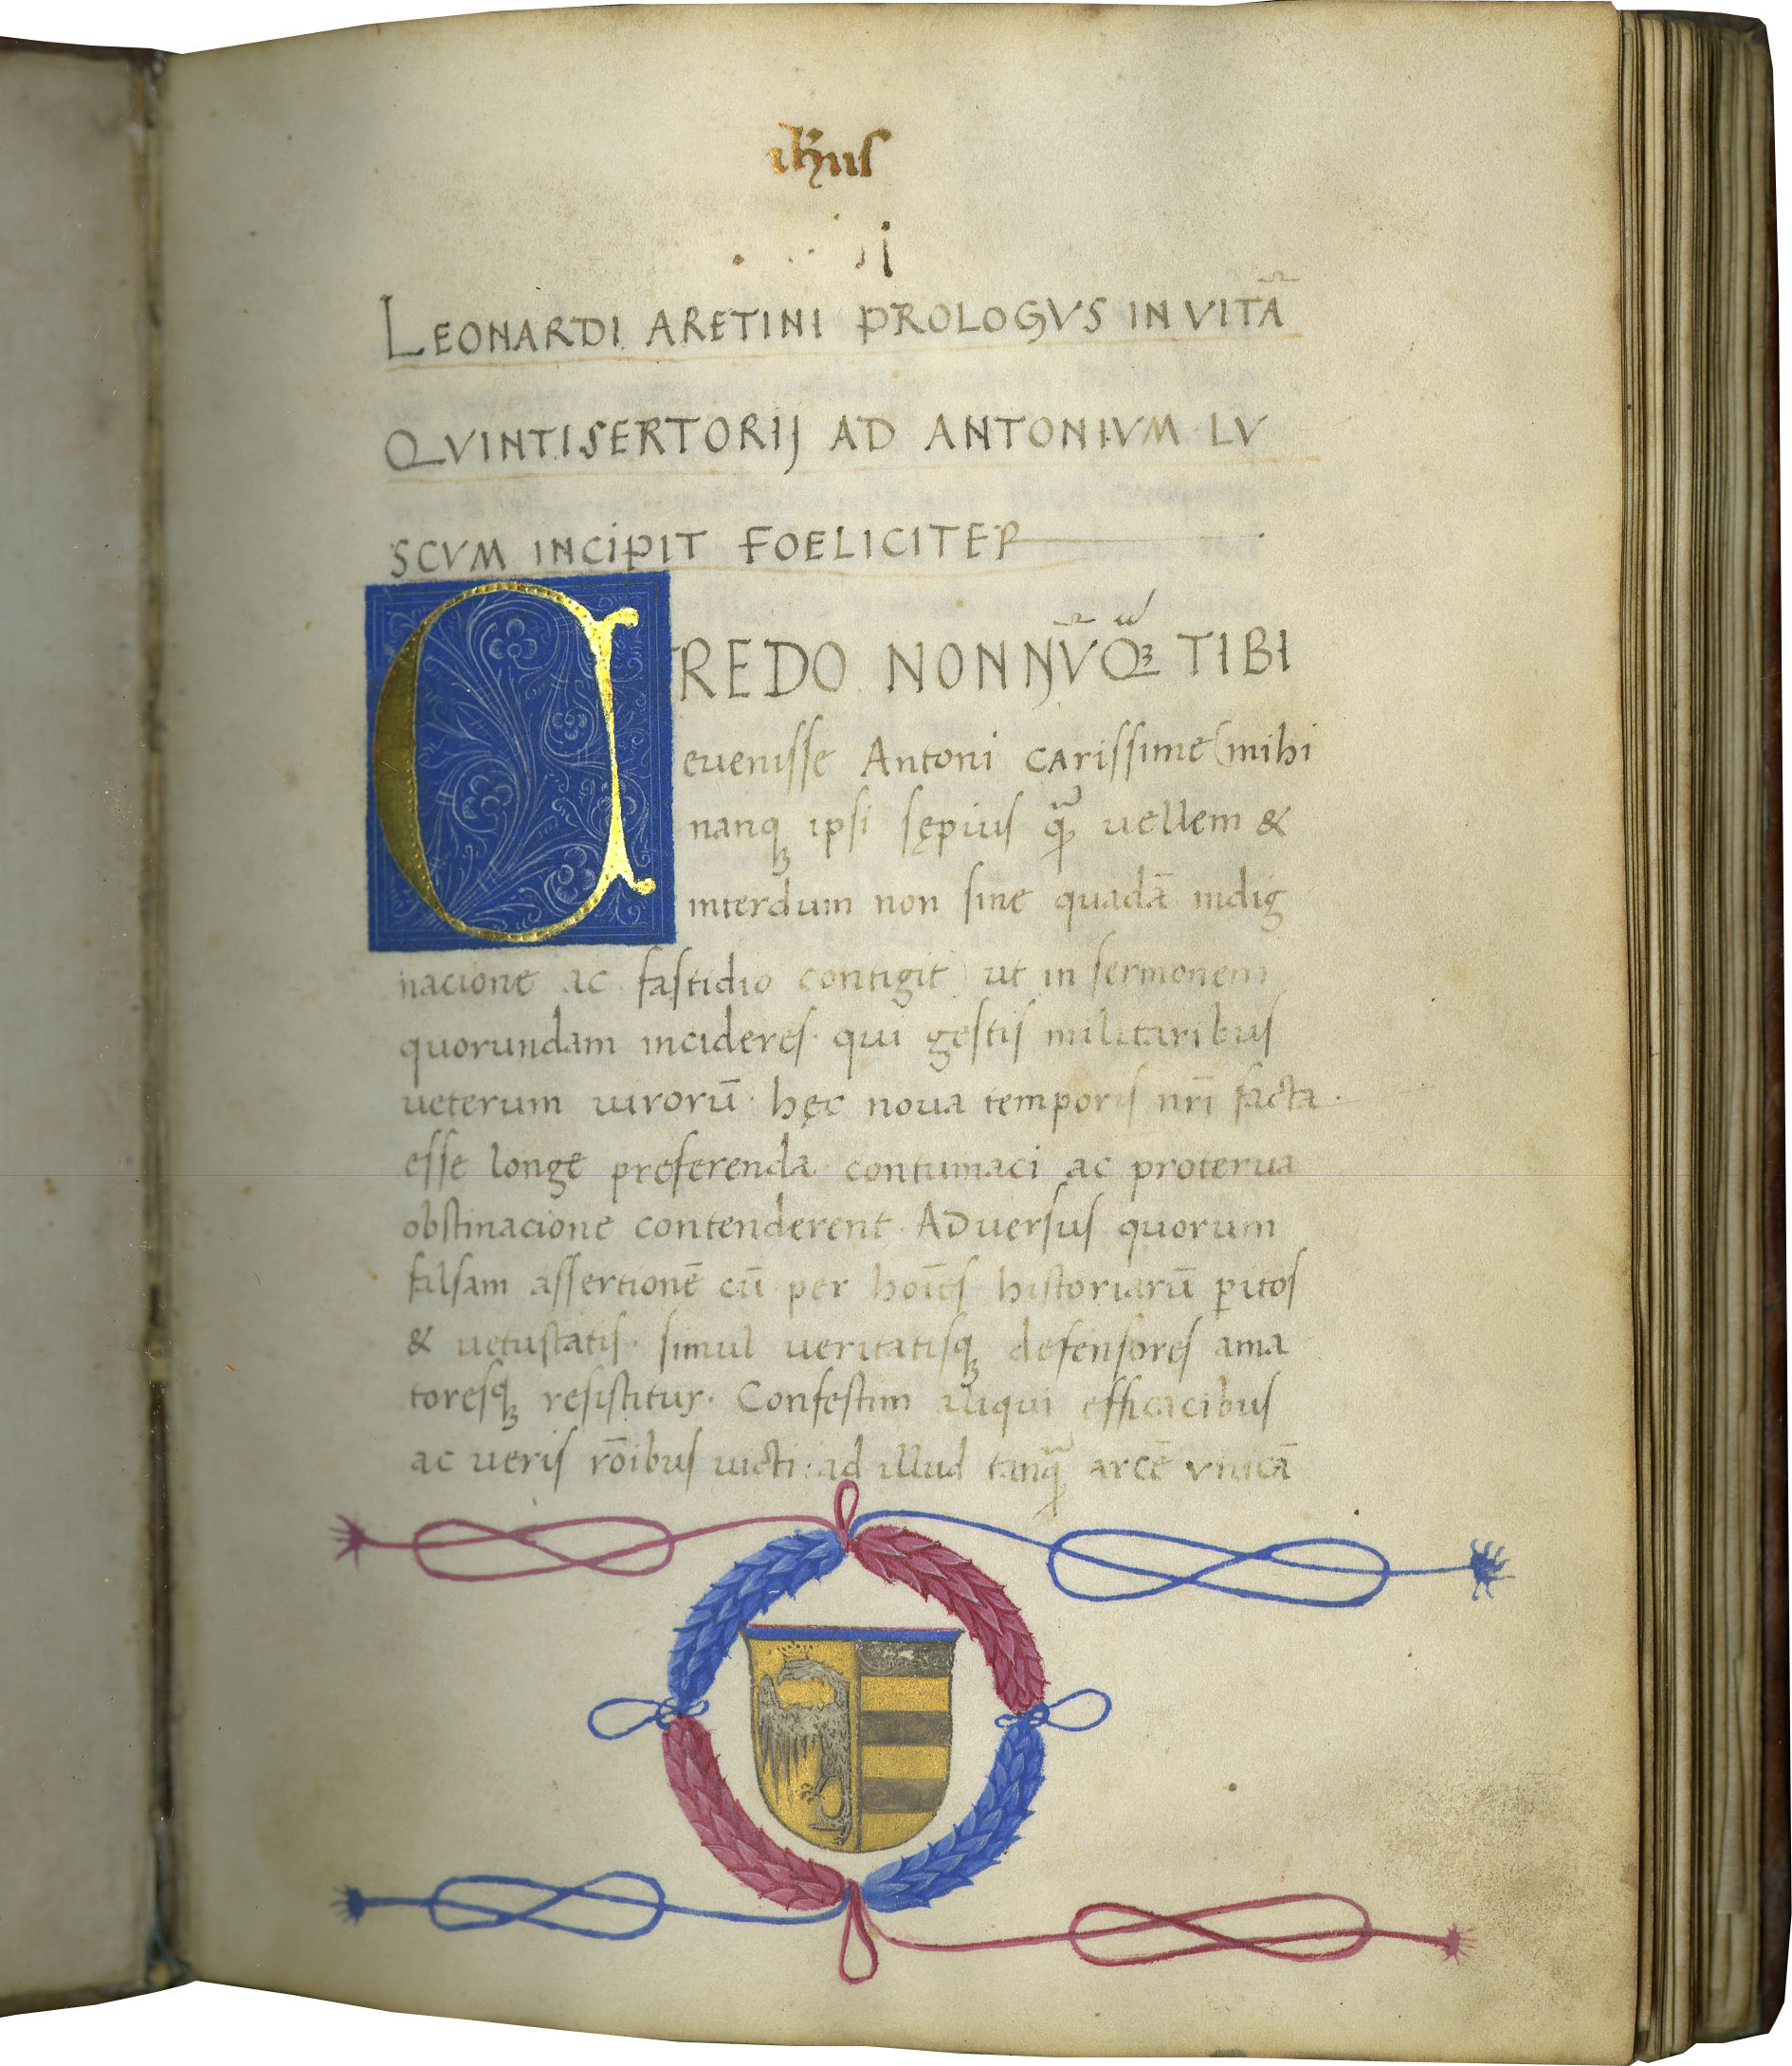 ihus
LEONARDI ARETINI PROLOGVS IN VITĀ
QVINTI SERTORIJ AD ANTONIVM LV
SCVM INCIPIT FOELICITER
CREDO NONNŪQꝫ TIBI
euenisse Antoni carissime (mihi
nanqꝫ ipsi sępius qͣ̃ꝫ uellem &
interdum non sine quadā indig
nacione ac fastidio contigit) ut in sermonem
quorundam incideres· qui gestis militaribus
ueterum uirorū· hęc noua temporis nr̄i facta·
esse longe preferenda· contumaci ac proterua
obstinacione contenderent· ADuersus quorum
falsam assertionē cū per hoīes historiarū ꝑitos
& uetustatis· simul ueritatisqꝫ defensores ama
toresqꝫ resistitur· Confestim aliqui efficacibus
ac ueris rōibus uicti: ad illud tanqͣ̃ arcē vnicā